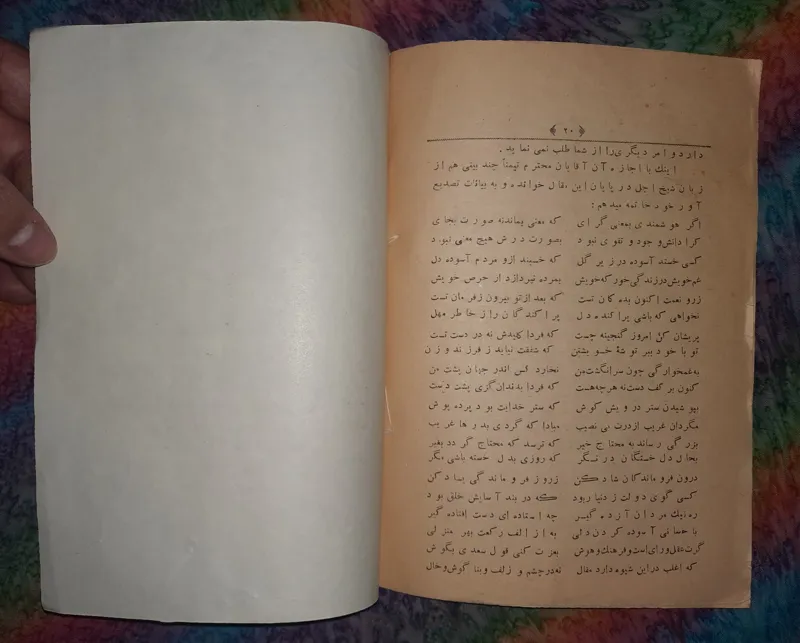 ﴿ ۲۰ ﴾
دارد و امر دیگری را از شما طلب نمی نماید .
اینك با اجازه آن آقایان محترم تیمناً چند بیتی هم از
زبان شیخ اجل در پایان این مقال خوانده و به بیانات تصدیع
آور خود خاتمه میدهم :
اگر هوشمندی بمعنی گرای که معنی بماندنه صورت بجای
کرا دانش و جود و تقوی نبود بصورت درش هیچ معنی نبود
کسی خسبد آسوده در زیر گل که خسبند ازو مردم آسوده دل
غم خویش در زندگی خور که خویش بمرده نپردازد از حرص خویش
زرو نعمت اکنون بده کان تست که بعد از تو بیرون زفرمان تست
نخواهی که باشی پراکنده دل پراکندگان را ز خاطر مهل
پریشان کن امروز گنجینه چست که فردا کلیدش نه در دست تست
تو با خود ببر توشهٔ خویشتن که شفقت نیاید ز فرزند و زن
به غمخوارگی چون سرانگشت من نخارد کس اندر جهان پشت من
کنون بر کف دست نه هرچه هست که فردا بدندان گزی پشت دست
بپوشیدن ستر درویش کوش که ستر خدایت بود پرده پوش
مگردان غریب ازدرت بی نصیب مبادا که گردی بدرها غریب
بزرگی رساند به محتاج خیر که ترسد که محتاج گردد بغیر
بحال دل خستگان در نگر که روزی بدل خسته باشی مگر
درون فروماندگان شاد کن زروز فروماندگی یاد کن
کسی گوی دولت ز دنیا ربود که در بند آسایش خلق بود
ره نیك مردان آزاده گیر چه استاده ای دست افتاده گیر
با حسانی آسوده کردن دلی به از الف رکعت بهر منزلی
گرت عقل و رای است و فرهنك و هوش بعزت کنی قول سعدی بگوش
که اغلب در این شیوه دارد مقال نه در چشم و زلف و بنا گوش و خال